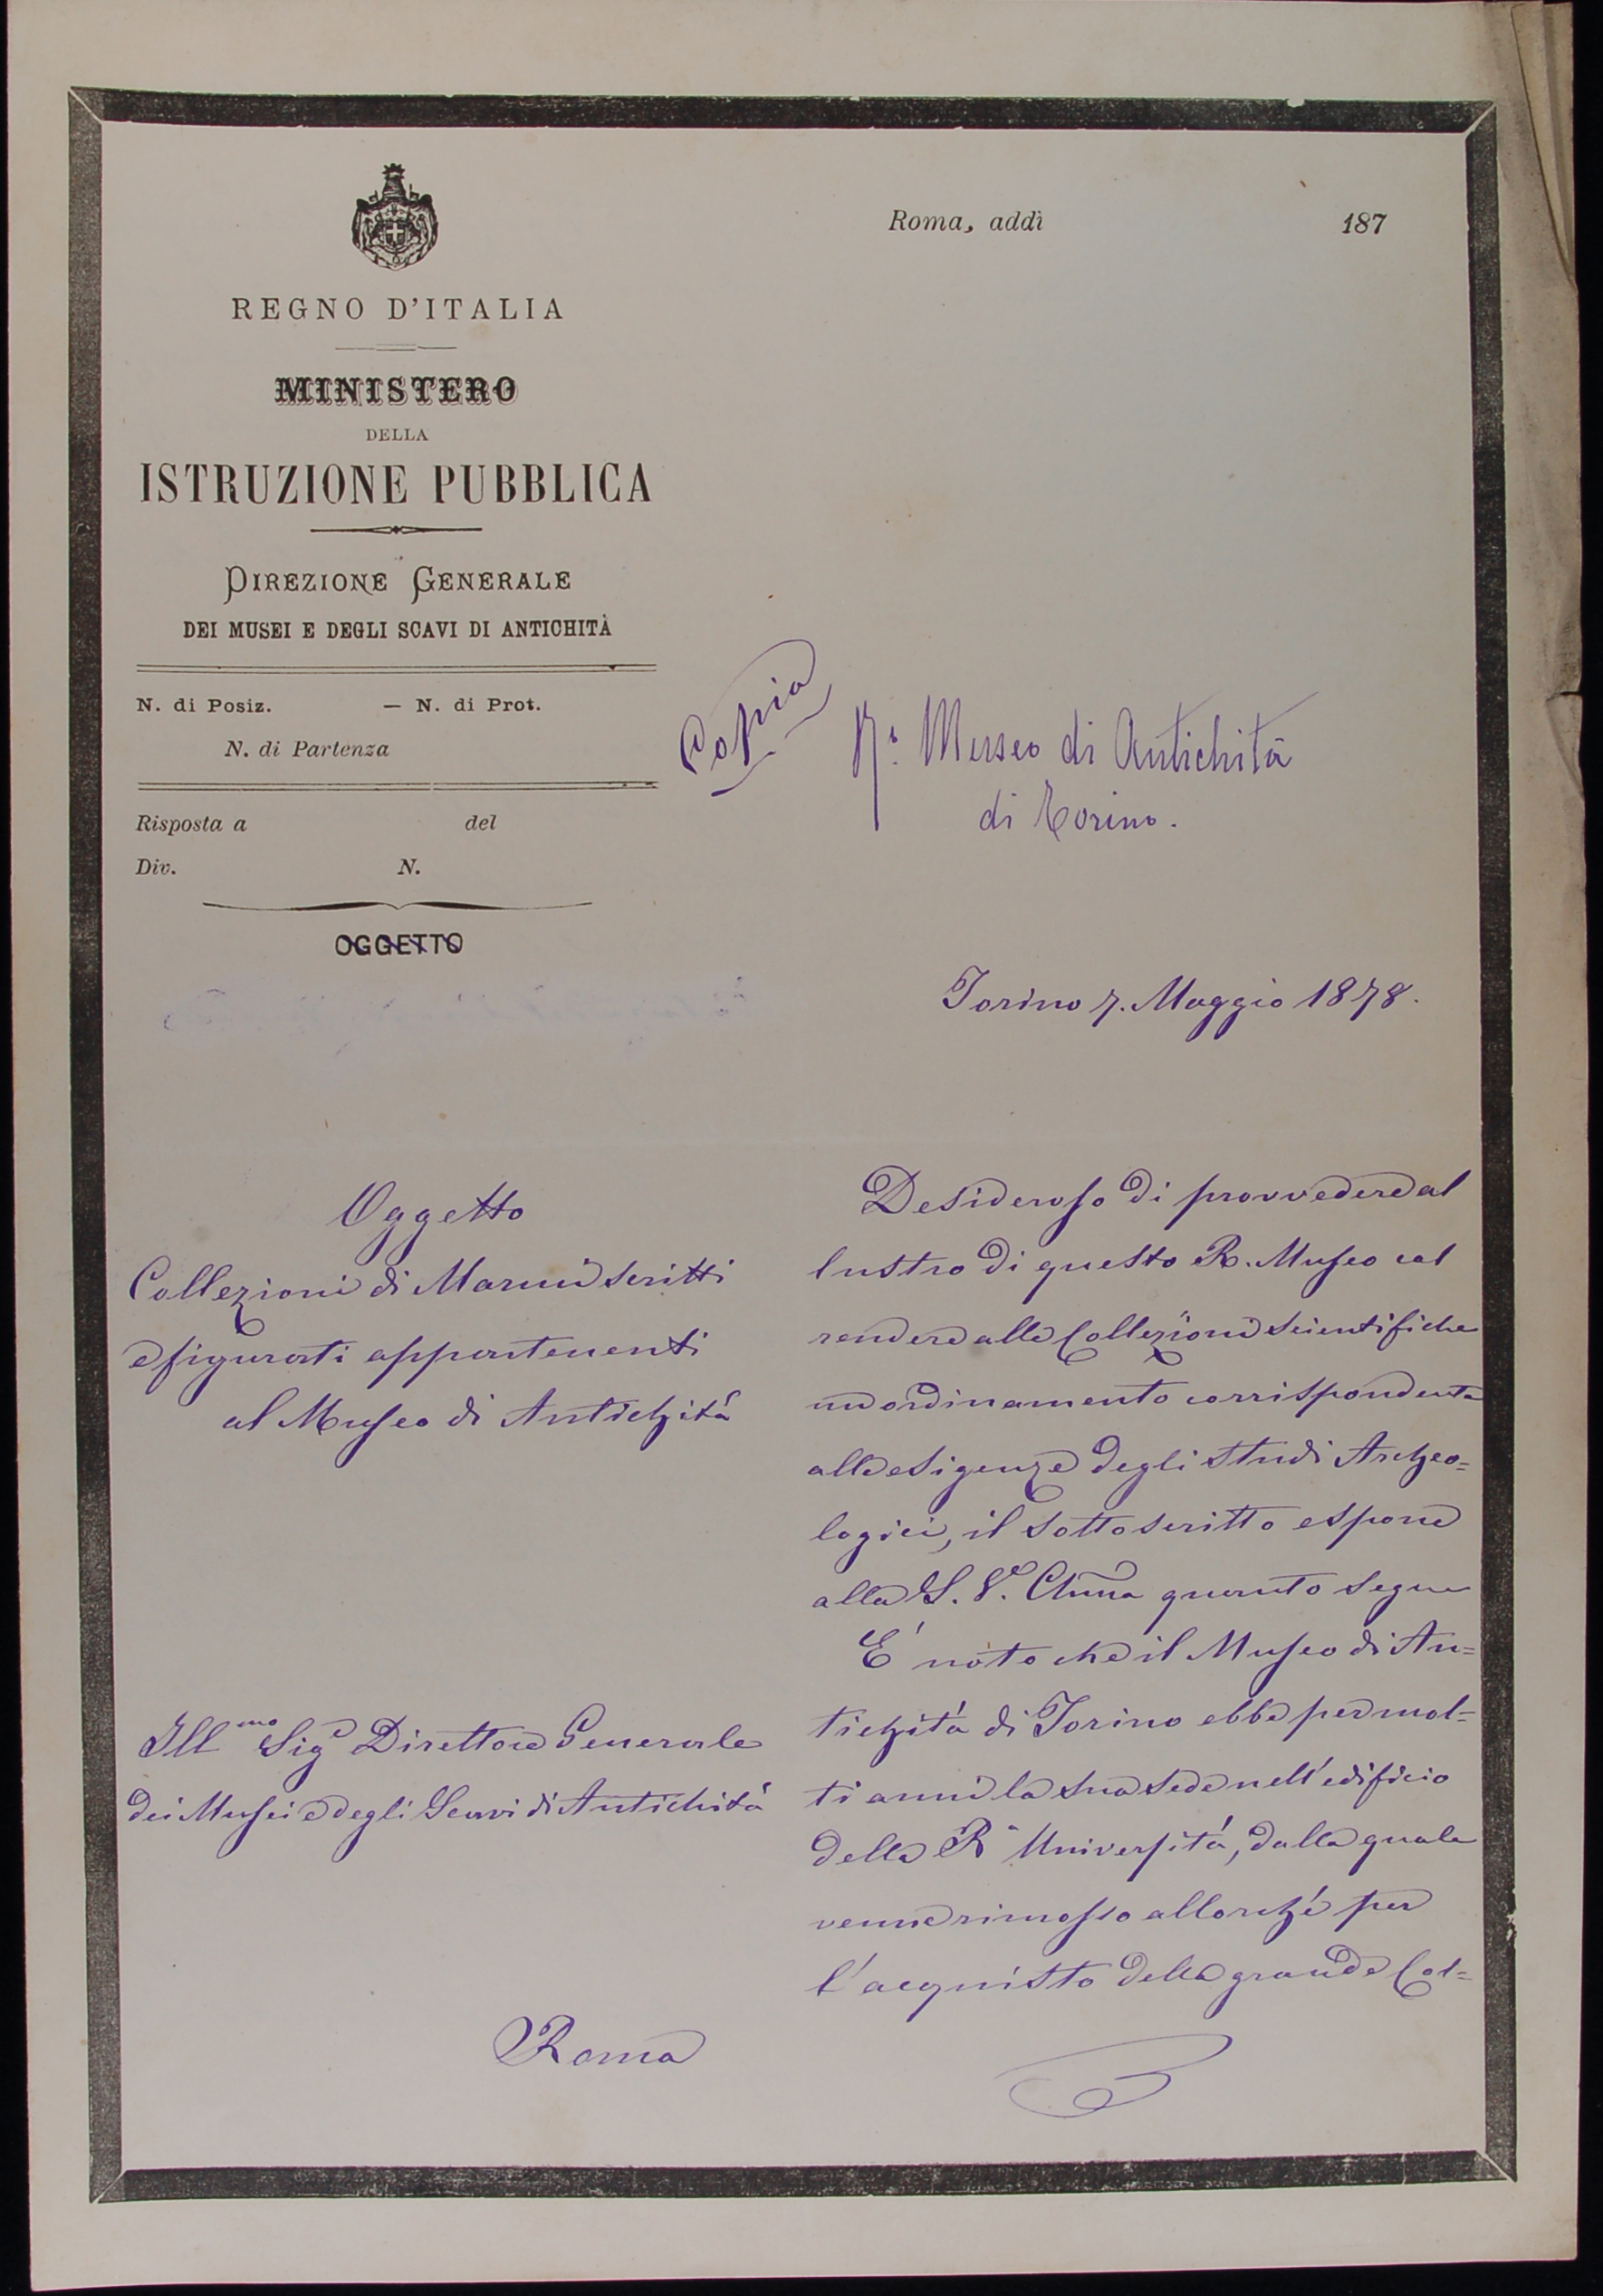 REGNO D'ITALIA
MINISTERO
DELLA
ISTRUZIONE PUBBLICA
DIREZIONE GENERALE
DEI MUSEI E DEGLI SCAVI DI ANTICHITÀ
N. di Posiz. — N. di Prot.
N. di Partenza
Risposta a del
Div. N.
OGGETTO
Roma, addì 187
Copia
R.º Museo di Antichità
di Torino.
Torino 7. Maggio 1878.
Oggetto
Collezioni di Marmi scritti
e figurati appartenenti
al Museo di Antichità
Ill.mo Sig.r Direttore Generale
dei Musei e degli Scavi di Antichità
Roma
Desideroso di provvedere al
lustro di questo R. Museo col
rendere alle Collezioni scientifiche
un ordinamento corrispondente
alle esigenze degli studi Archeo=
logici, il sottoscritto espone
alla S. V.ª Chma quanto segue
E' noto che il Museo di An=
tichità di Torino ebbe per mol=
ti anni la sua sede nell'edificio
della R.ª Università, dalla quale
venne rimosso allorché per
l'acquisto della grande Col=